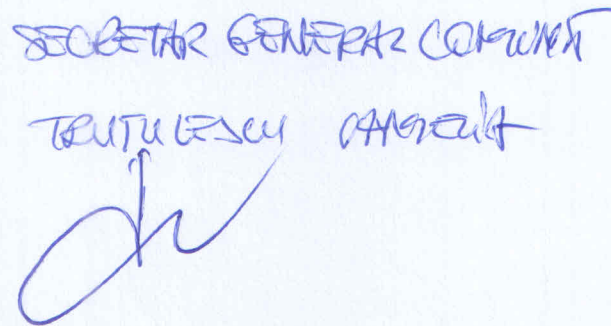 SECRETAR GENERAL COMUNĂ
TRUȚULESCU CAMELIA